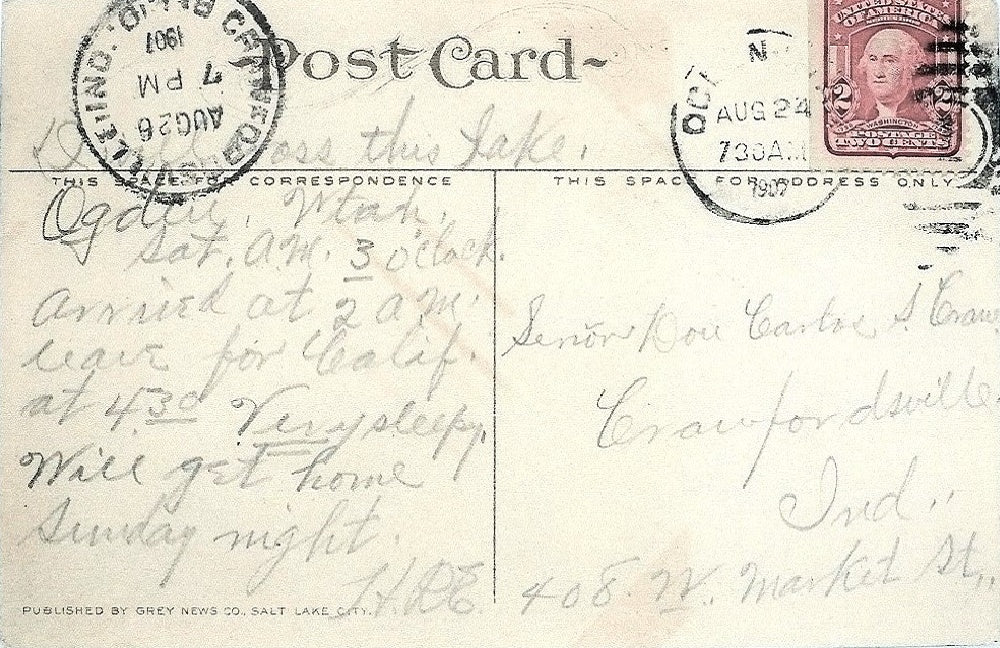 CRAWFO
VILLE, IND.
AUG 26
7 PM
1907
Post Card
OCT
N
AUG 24
730 AM
1907
UNITED STATES
OF AMERICA
2 2
WASHINGTON
POSTAGE
TWO CENTS
this lake.
THIS SPACE FOR CORRESPONDENCE
THIS SPACE FOR ADDRESS ONLY
Ogden, Utah.
Sat. A.M. 3 o'clock.
Arrived at 2 A M.
leave for Calif.
at 4 30 Very sleepy.
Will get home
Sunday night.
H.R.E
Senõr Don Carlos S. Craw
Crawfordsville
Ind.
408 W. Market St.,
PUBLISHED BY GREY NEWS CO., SALT LAKE CITY.